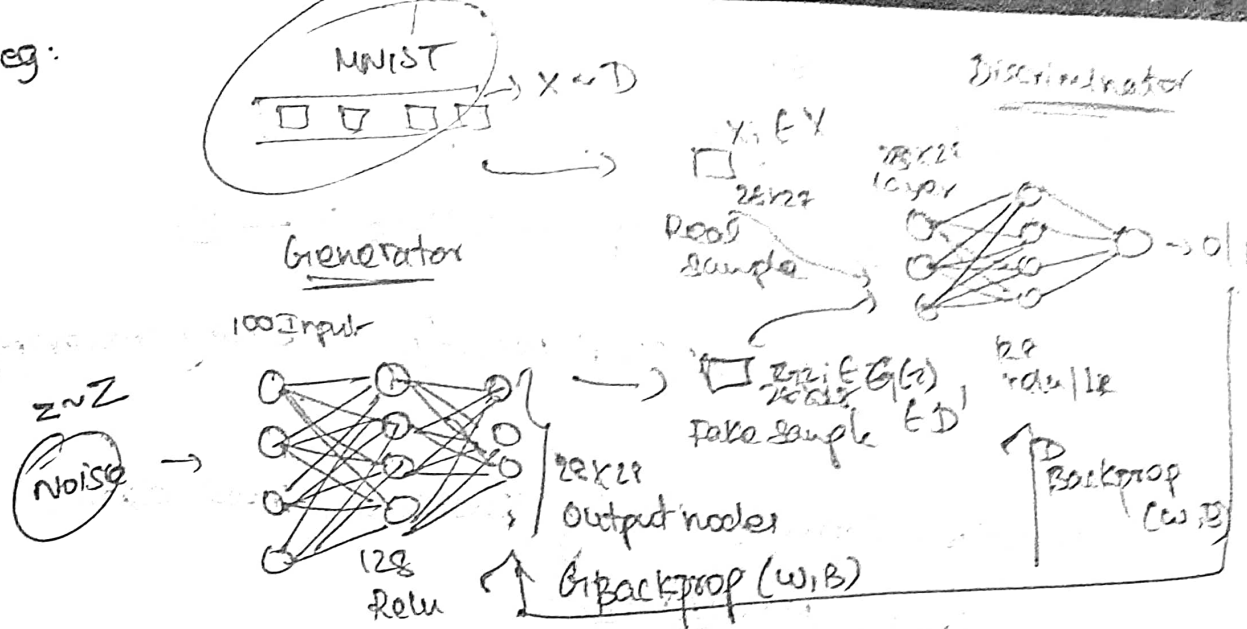 eg:
MNIST
→ X ~ D
Discriminator
Xi ∈ X
28x28
layer
Real
Sample
→ 0/1
Generator
100 Input
z~Z
Noise
→
∈ G(z)
∈ D'
Fake Sample
relu/le
28x28
Output nodes
128
Relu
G Backprop (W,B)
D
Backprop
(W,B)